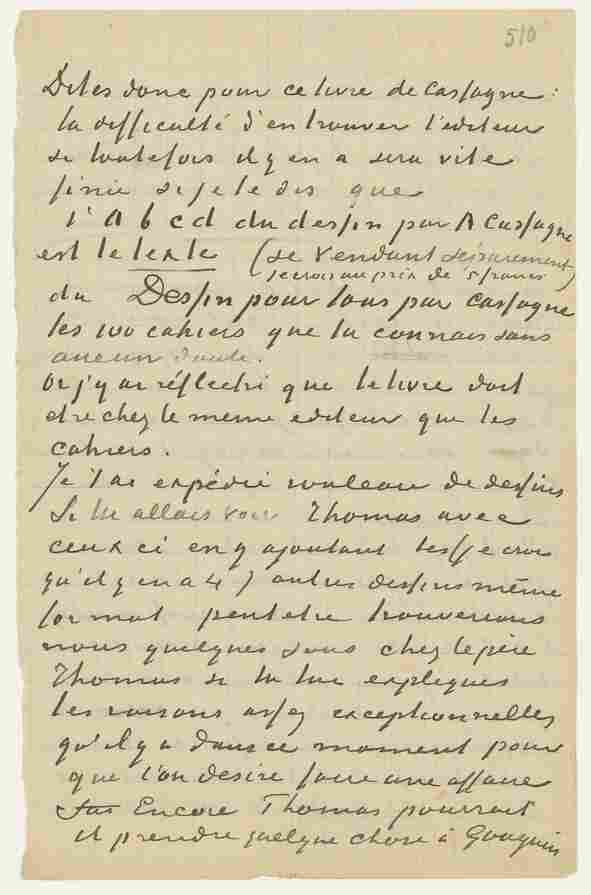 510
Dites donc pour ce livre de Cassagne:
la difficulté d'en trouver l'editeur
si toutefois il y en a sera vite
finie si je te dis que
l'A b c d du dessin par A Cassagne
est le texte (se vendant séparement
je crois au prix de 5 francs)
du Dessin pour tous par Cassagne
les 100 cahiers que tu connais sans
aucun doute.
Or j'y ai réflechi que le livre doit
etre chez le meme editeur que les
cahiers.
Je t'ai expédié rouleau de dessins
Si tu allais voir Thomas avec
ceux ci en y ajoutant les (je crois
qu'il y en a 4) autres dessins même
format peut etre trouverions
nous quelques sous chez le père
Thomas si tu lui expliques
les raisons assez exceptionnelles
qu'il y a dans ce moment pour
que l'on desire faire une affaire
Encore Thomas pourrait
il prendre quelque chose à Gauguin